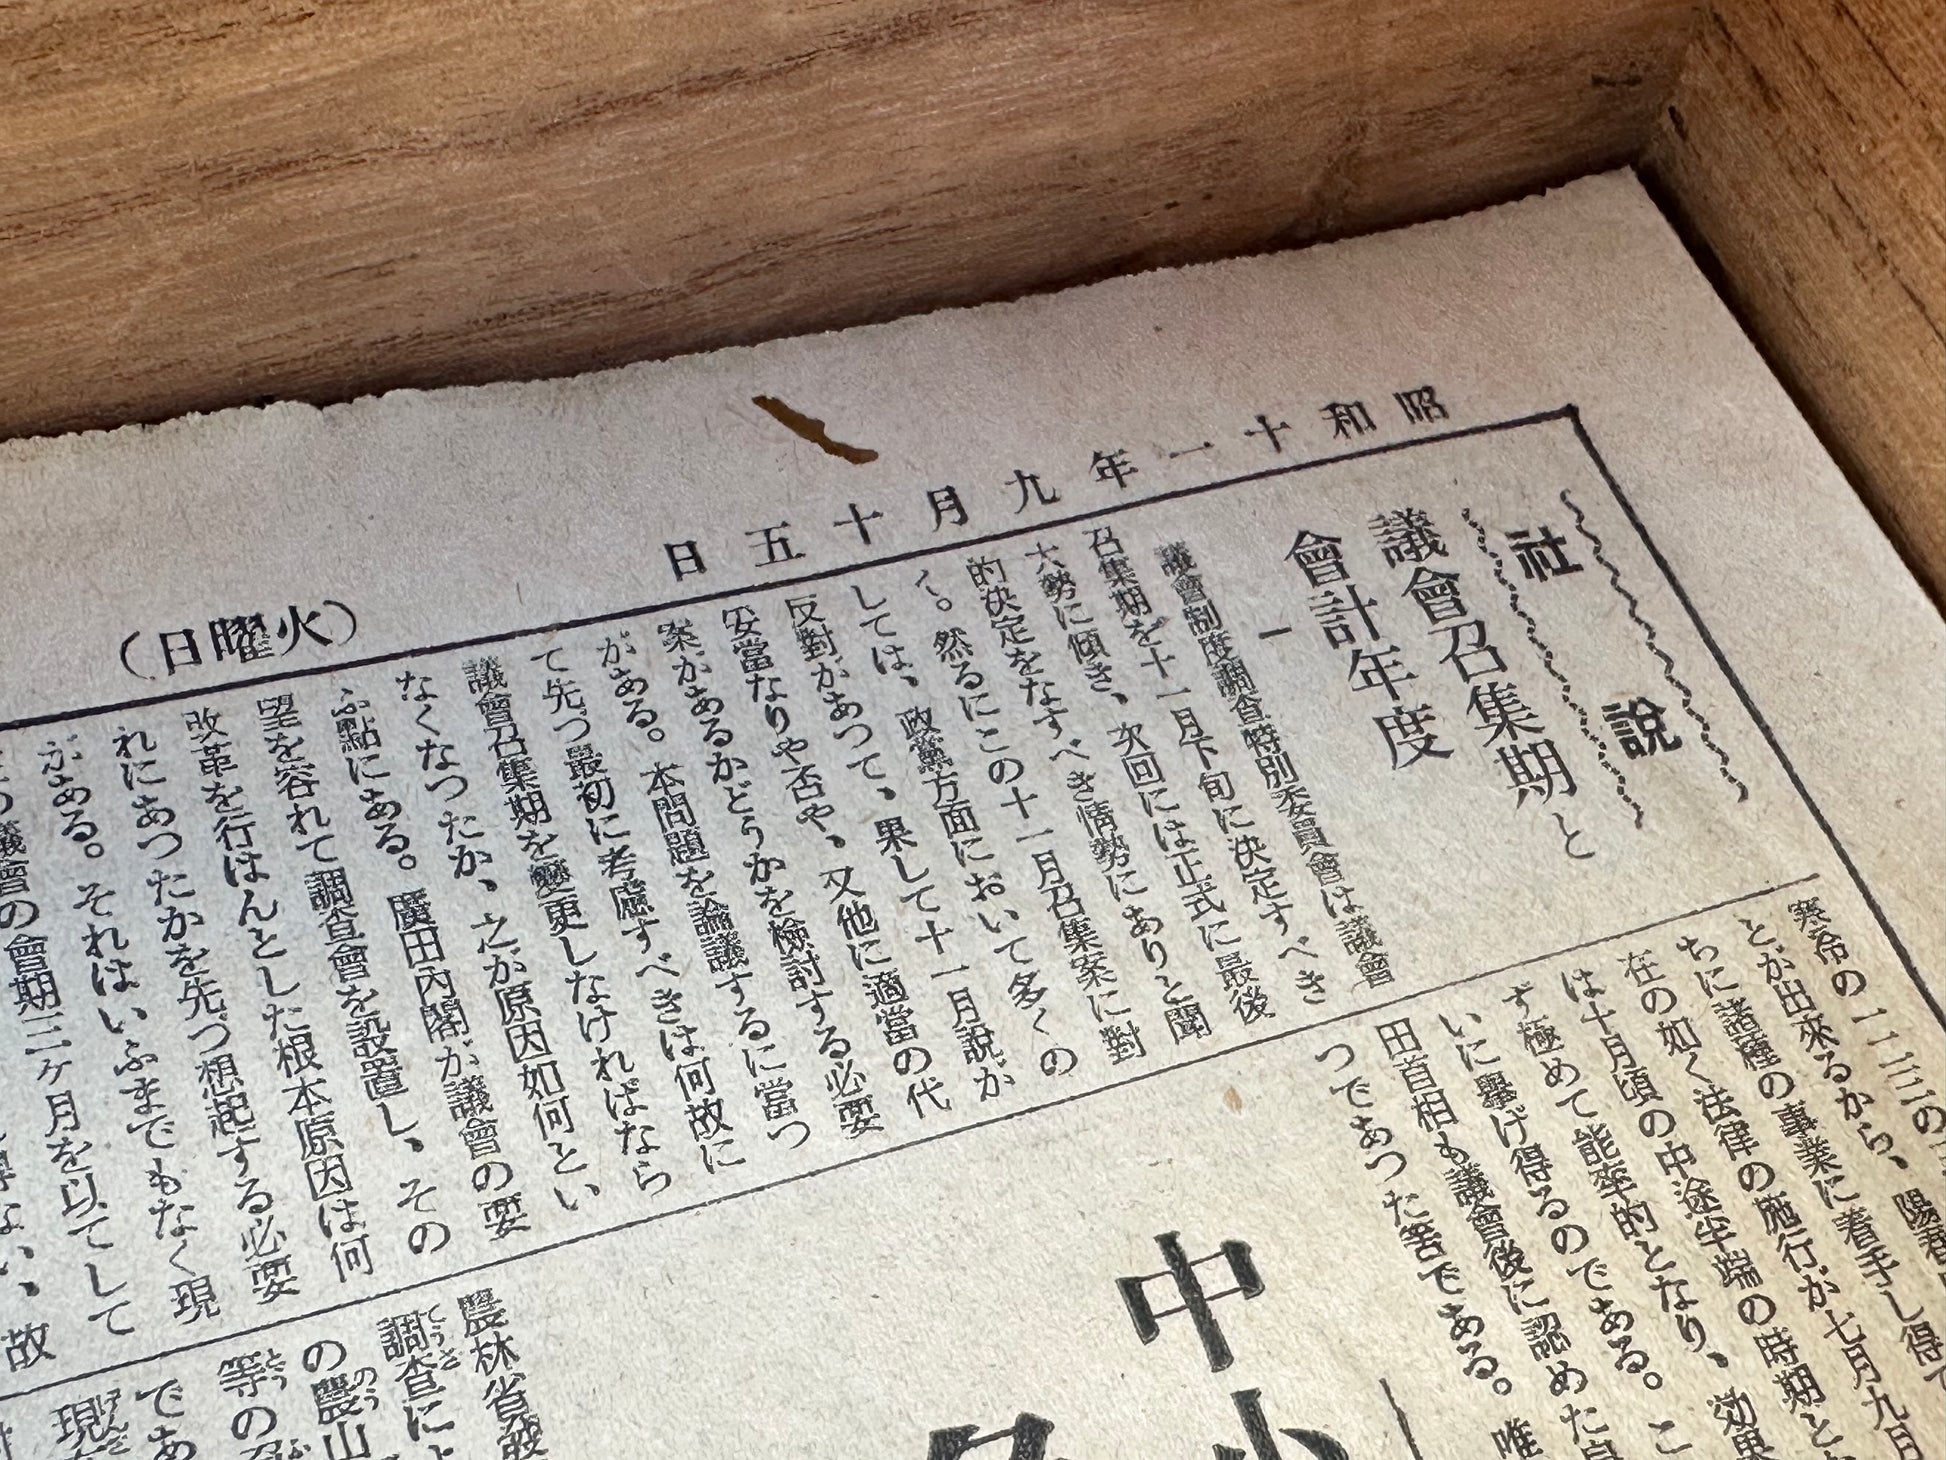 昭和十一年九月十五日
(火曜日)
社説
議會召集期と
會計年度
一
議會制度調査特別委員會は議會
召集期を十一月下旬に決定すべき
大勢に傾き、次回には正式に最後
的決定をなすべき情勢にありと聞
く。然るにこの十一月召集案に對
しては、政黨方面において多くの
反對があつて、果して十一月説が
妥當なりや否や、又他に適當の代
案があるかどうかを檢討する必要
がある。本問題を論議するに當つ
て先づ最初に考慮すべきは何故に
議會召集期を變更しなければなら
なくなつたか、之が原因如何とい
ふ點にある。廣田內閣が議會の要
望を容れて調査會を設置し、その
改革を行はんとした根本原因は何
れにあつたかを先づ想起する必要
がある。それはいふまでもなく現
議會の會期三ケ月を以てして
故
寒冷の一二三の
とが出來るから、陽春
ちに諸種の事業に着手し得て
在の如く法律の施行が七月九月
は十月頃の中途半端の時期と
ず極めて能率的となり、効果
いに擧げ得るのである。こ
田首相も議會後に認めた
つであつた筈である。唯
中
小
農林省
調査に
の農山
等の
であ
現